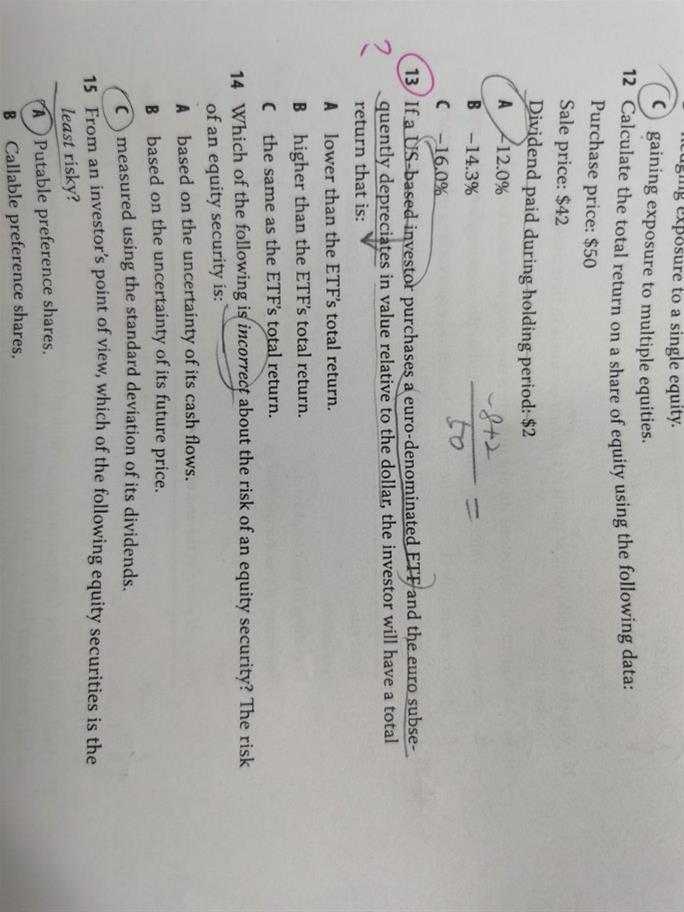 exposure to a single equity.
C gaining exposure to multiple equities.
12 Calculate the total return on a share of equity using the following data:
Purchase price: $50
Sale price: $42
Dividend paid during holding period: $2
A −12.0%
B −14.3%
C −16.0%
-8+2
50
=
?
13 If a US-based investor purchases a euro-denominated ETF and the euro subse-
quently depreciates in value relative to the dollar, the investor will have a total
return that is:
A lower than the ETF's total return.
B higher than the ETF's total return.
C the same as the ETF's total return.
14 Which of the following is incorrect about the risk of an equity security? The risk
of an equity security is:
A based on the uncertainty of its cash flows.
B based on the uncertainty of its future price.
C measured using the standard deviation of its dividends.
15 From an investor's point of view, which of the following equity securities is the
least risky?
A Putable preference shares.
B Callable preference shares.